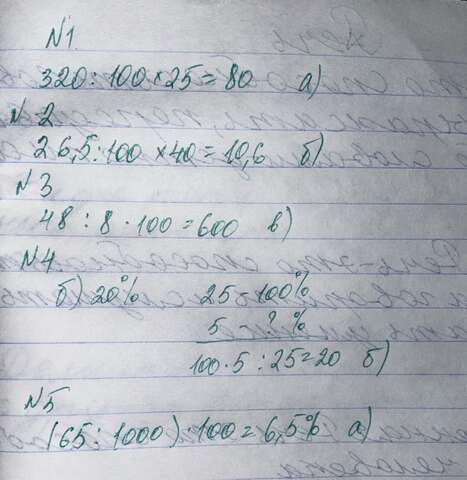 №1
320 : 100 × 25 = 80 а)
№2
26,5 : 100 × 40 = 10,6 б)
№3
48 : 8 · 100 = 600 в)
№4
б) 20% 25 – 100%
5 – ? %
100 · 5 : 25 = 20 б)
№5
(65 : 1000) · 100 = 6,5% а)